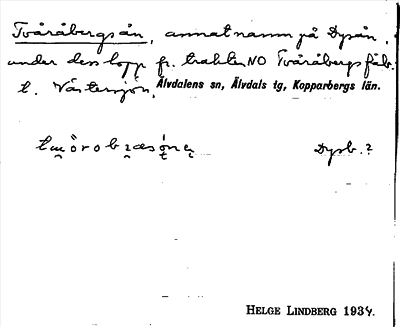 Tvåråbergsån, annat namn på Dysån,
under dess lopp fr. trakten NO Tvåråbergs fäb.
t. Västersjön, Älvdalens sn, Älvdals tg, Kopparbergs län.
Dysb.?
HELGE LINDBERG 1934.